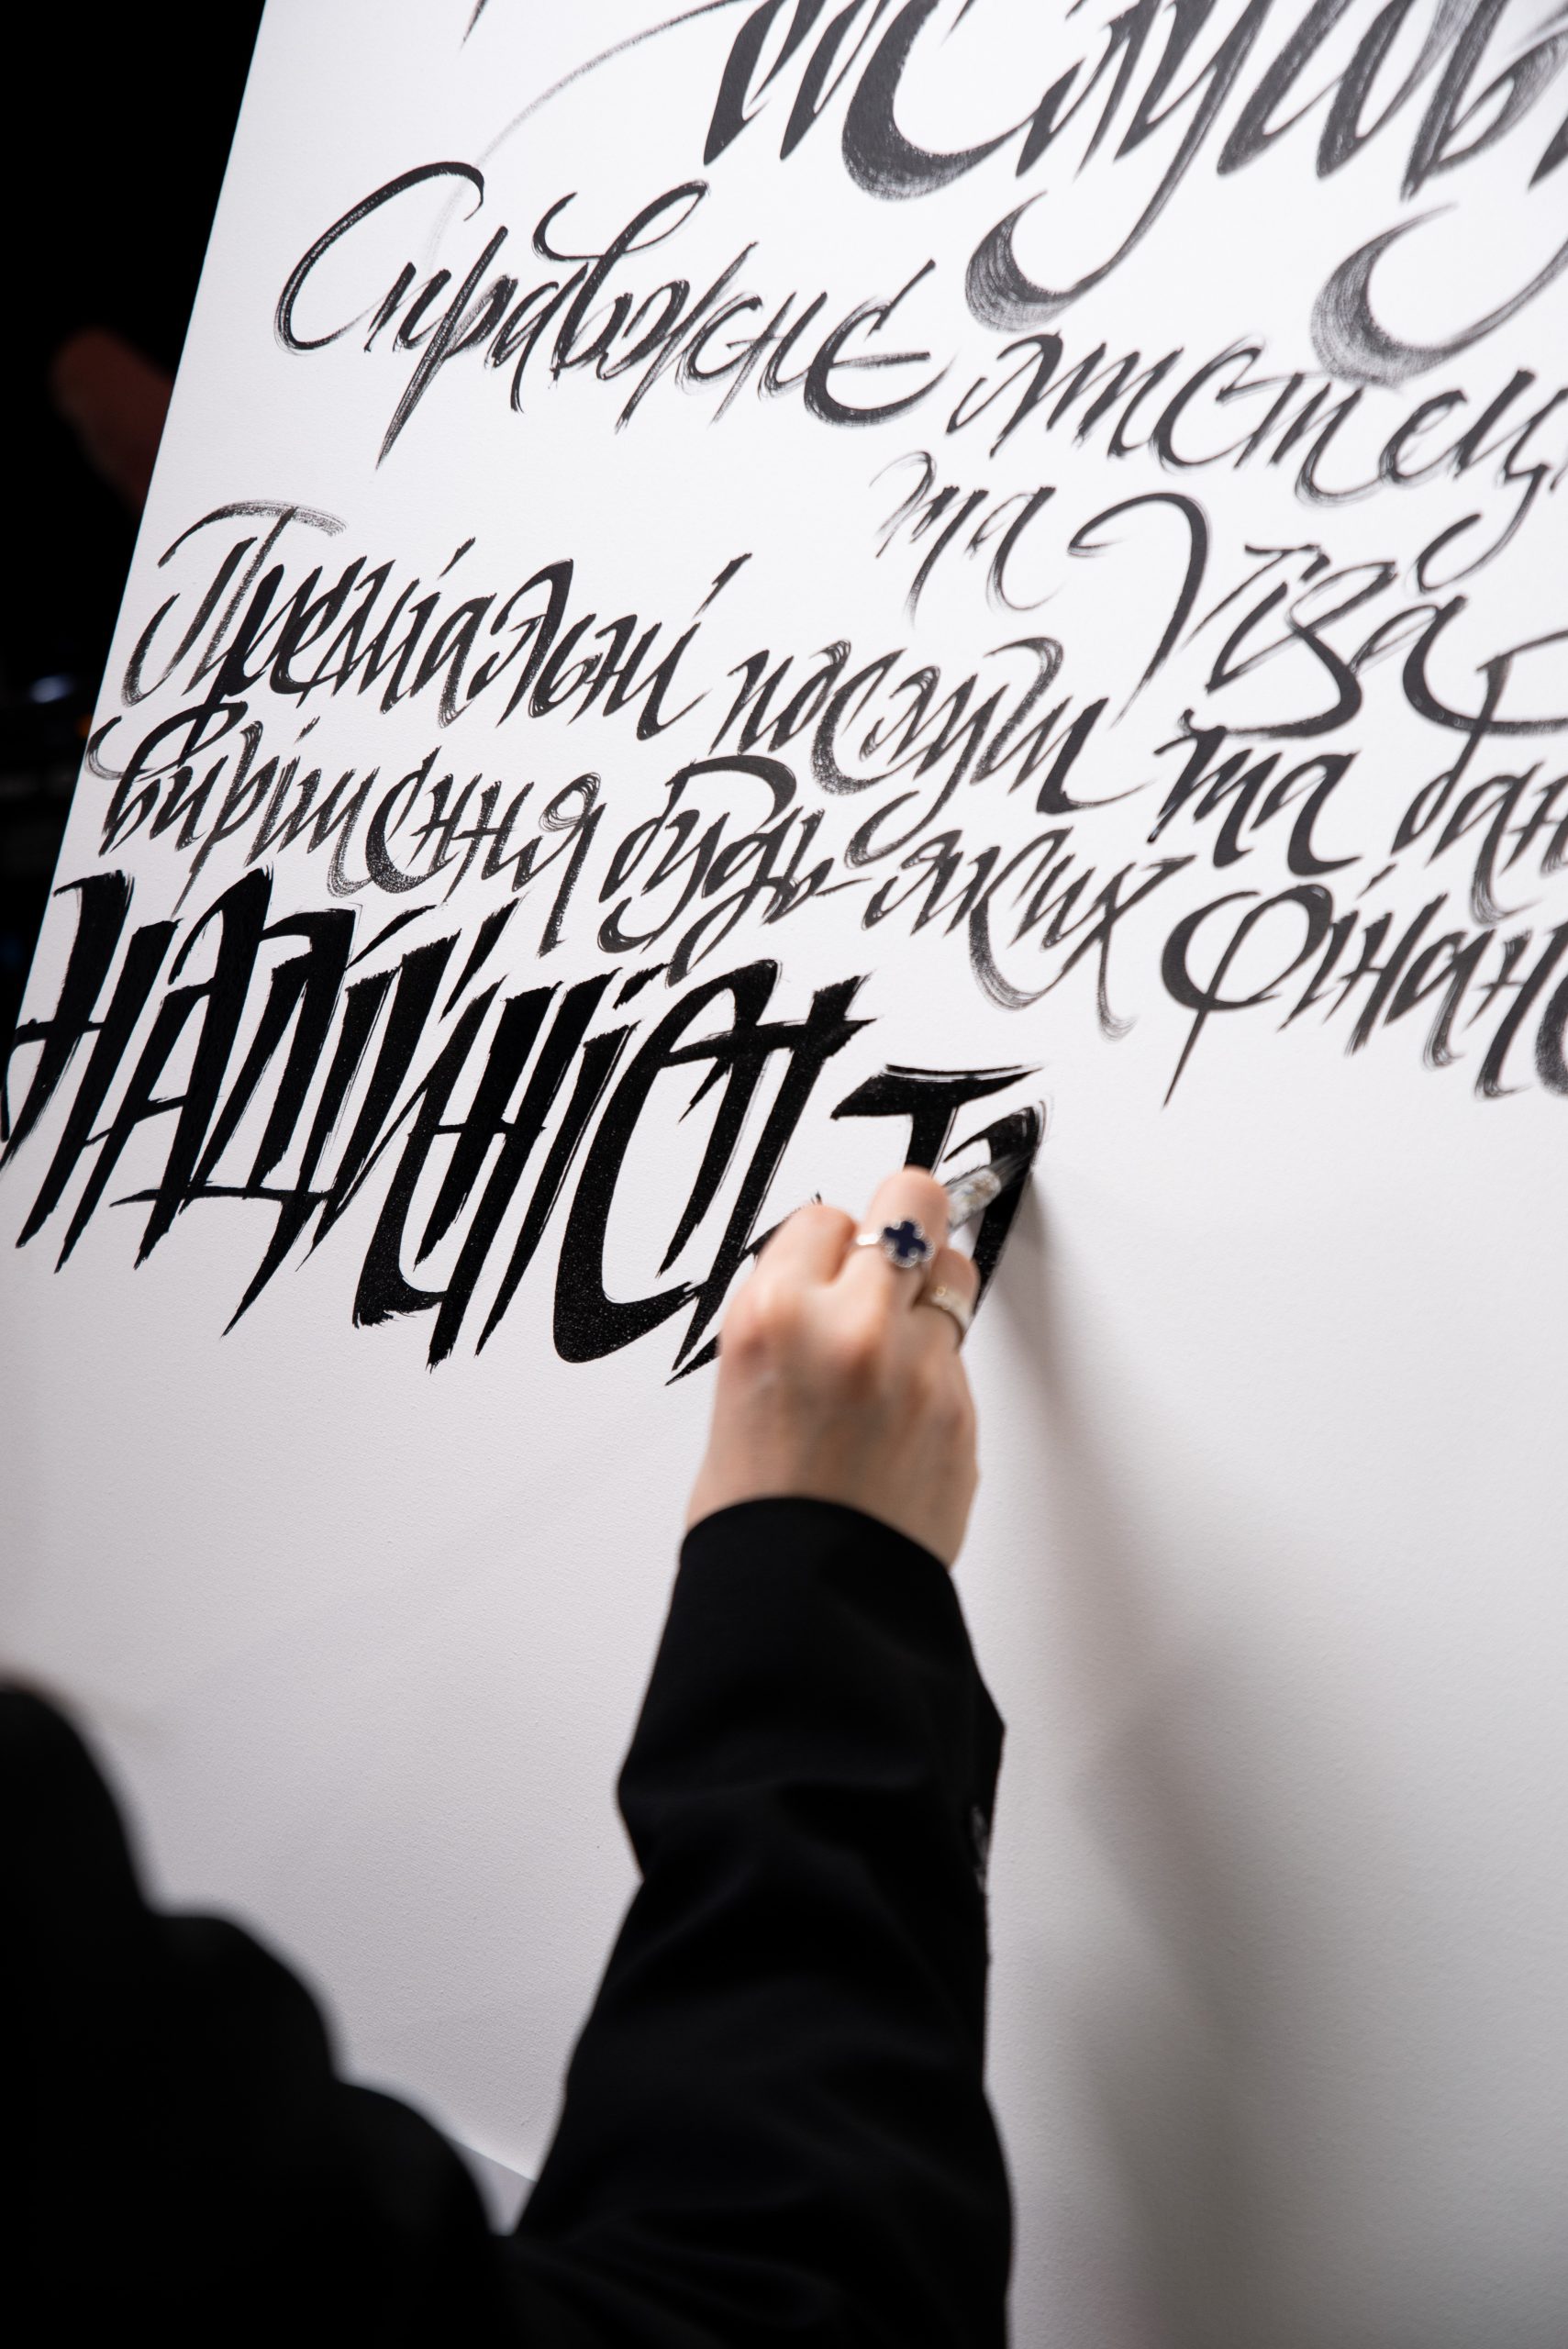 Справжнє мистец
та Visa
Преміальні послуги та бан
вирішення будь-яких фінанс
НАДІЙНІСТЬ